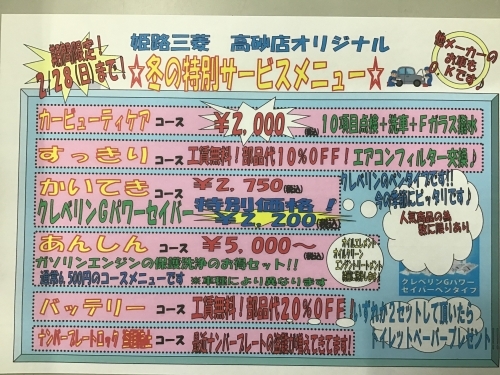 期間限定!
2/28(日)まで!
姫路三菱 高砂店オリジナル
☆冬の特別サービスメニュー☆
他メーカーの
お車も
O.Kです♪
カービューティケア コース ¥2,000(税込) 10項目点検+洗車+Fガラス撥水
すっきり コース 工賃無料!部品代10%OFF!エアコンフィルター交換♪
かいてき コース ¥2,750(税込)
クレベリンGパワーセイバー 特別価格!
¥2,200(税込)
クレベリンのペンタイプです!!
今の季節にピッタリです♪
人気商品の為
数に限りあり
クレベリンGパワー
セイバーペンタイプ
あんしん コース ¥5,000～(税込)
ガソリンエンジンの保護洗浄のお得セット!!
通常6,500円のコースメニューです ※車種により異なります
オイルエレメント+
オイルクリーン
エンジントリートメント
バッテリー コース 工賃無料!部品代20%OFF
ナンバープレートロック コース 最近ナンバープレートの盗難が増えてきてます!
いずれか2セットして頂いたら
トイレットペーパープレゼント